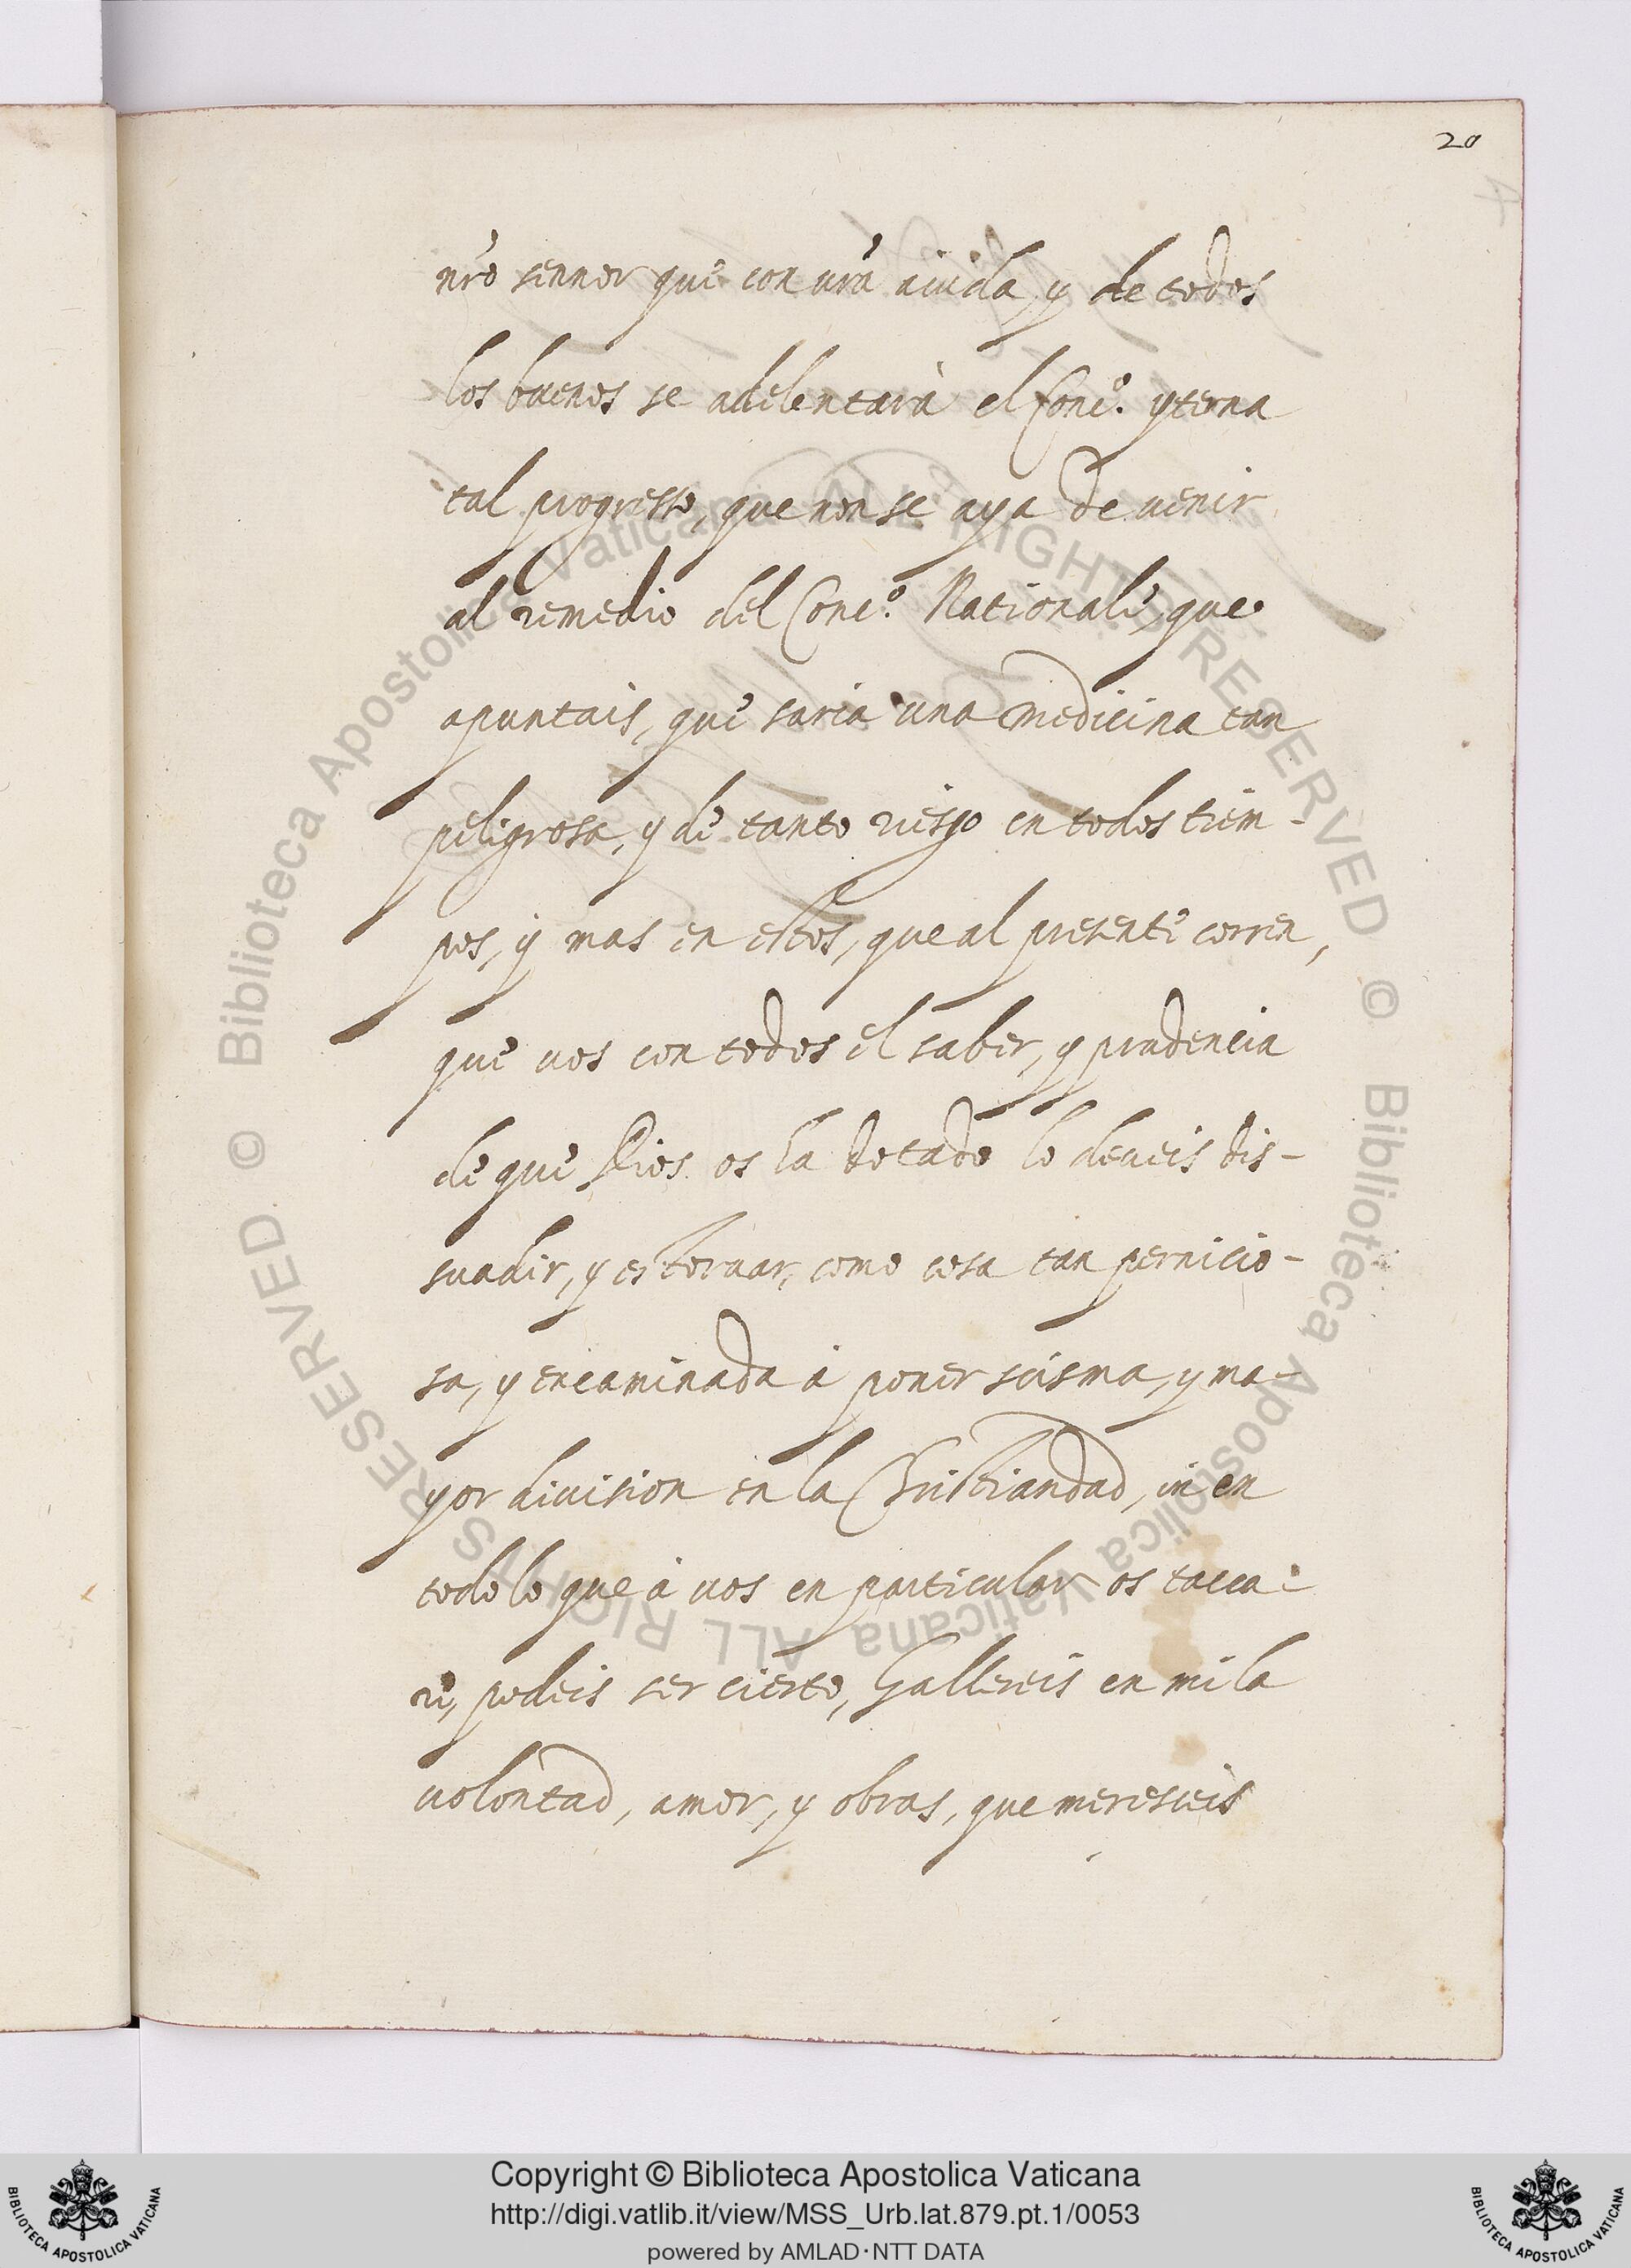 20
nr̃o sennor que con ur̃a aiuda, y de todos
los buenos se adelentarà el Conc.º y terna
tal progresso, que non se aya de venir
al remedio del Conc.º Nationale, que
apuntais, que saria una medicina tan
peligrosa, y de tanto riesgo en todos tiem-
pos, y mas en estos, que al presente corren,
que vos con todos el saber, y prudencia
de que Dios os ha dotado lo deveis dis-
suadir, y estorvar, como cosa tan pernicio-
sa, y encaminada à poner scisma, y ma-
yor division en la Christiandad, in en
todo lo que à vos en particular os tocca-
re, podeis ser cierto, hallereis en mi la
volontad, amor, y obras, que meresceis
© Biblioteca Apostolica Vaticana ALL RIGHTS RESERVED
© Biblioteca Apostolica Vaticana ALL RIGHTS RESERVED
Copyright © Biblioteca Apostolica Vaticana
http://digi.vatlib.it/view/MSS_Urb.lat.879.pt.1/0053
powered by AMLAD·NTT DATA
BIBLIOTECA APOSTOLICA VATICANA
BIBLIOTECA APOSTOLICA VATICANA